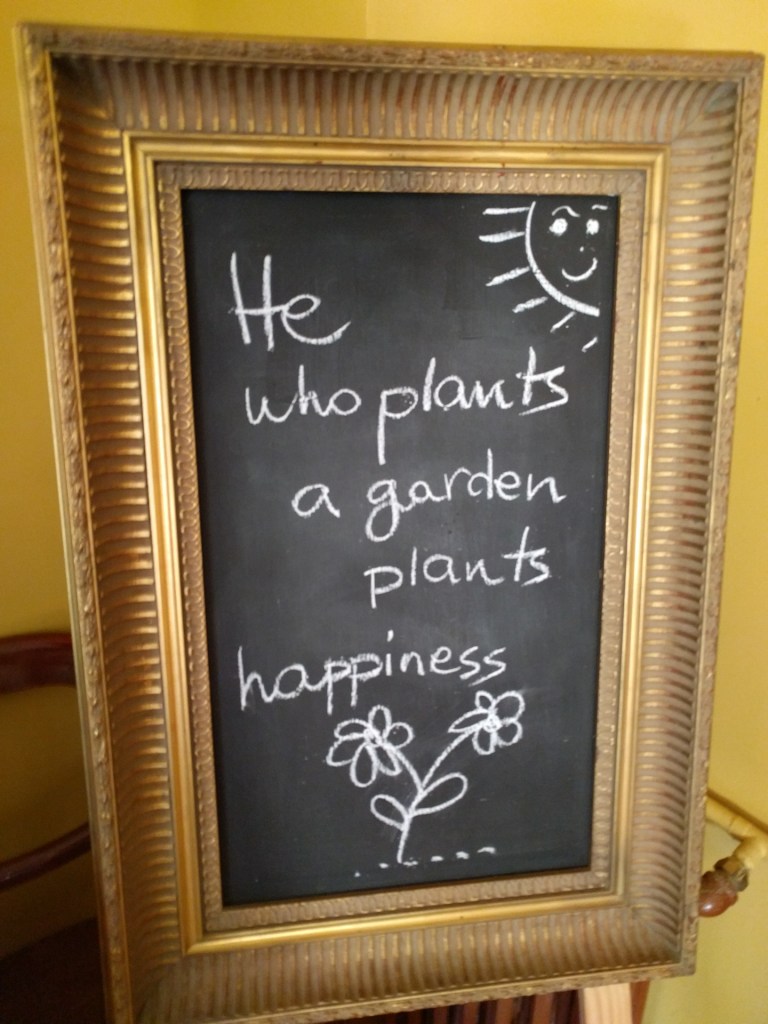 He
who plants
a garden
plants
happiness